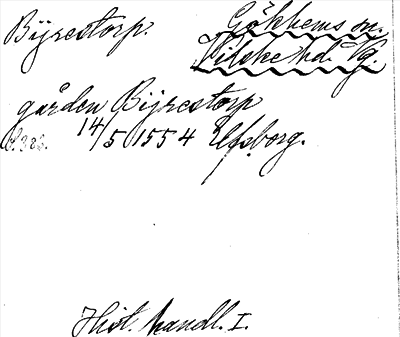 Byrestorp. Gökhems sn.
Vilske hd. Vg.
gården Byrestorp
14/5 1554 Elfsborg.
Hist. handl. I.